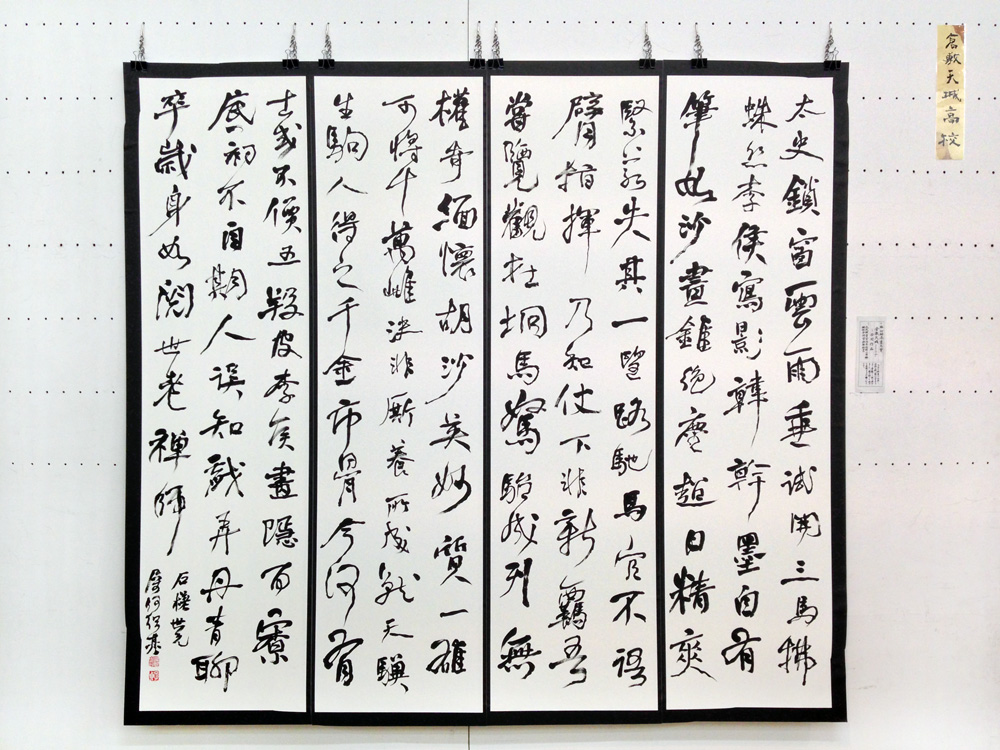 太史鎖窗雲雨垂試開三馬拂
蛛絲李侯寫影韓幹墨自有
筆如沙畫錐絕塵超日精爽
緊若失其一望路馳馬官不語
臂指揮乃知仗下非新羈吾
嘗覽觀在坰馬駑駘成列無
權奇緬懷胡沙英妙質一雄
可將十萬雌決非廝養所成就天驥
生駒人得之千金市骨今何有
士或不價五羖皮李侯畫隱百寮
底初不自期人誤知戲弄丹青聊
卒歲身如閱世老禪師
石樵世兄
屬何紹基
倉敷天城高校